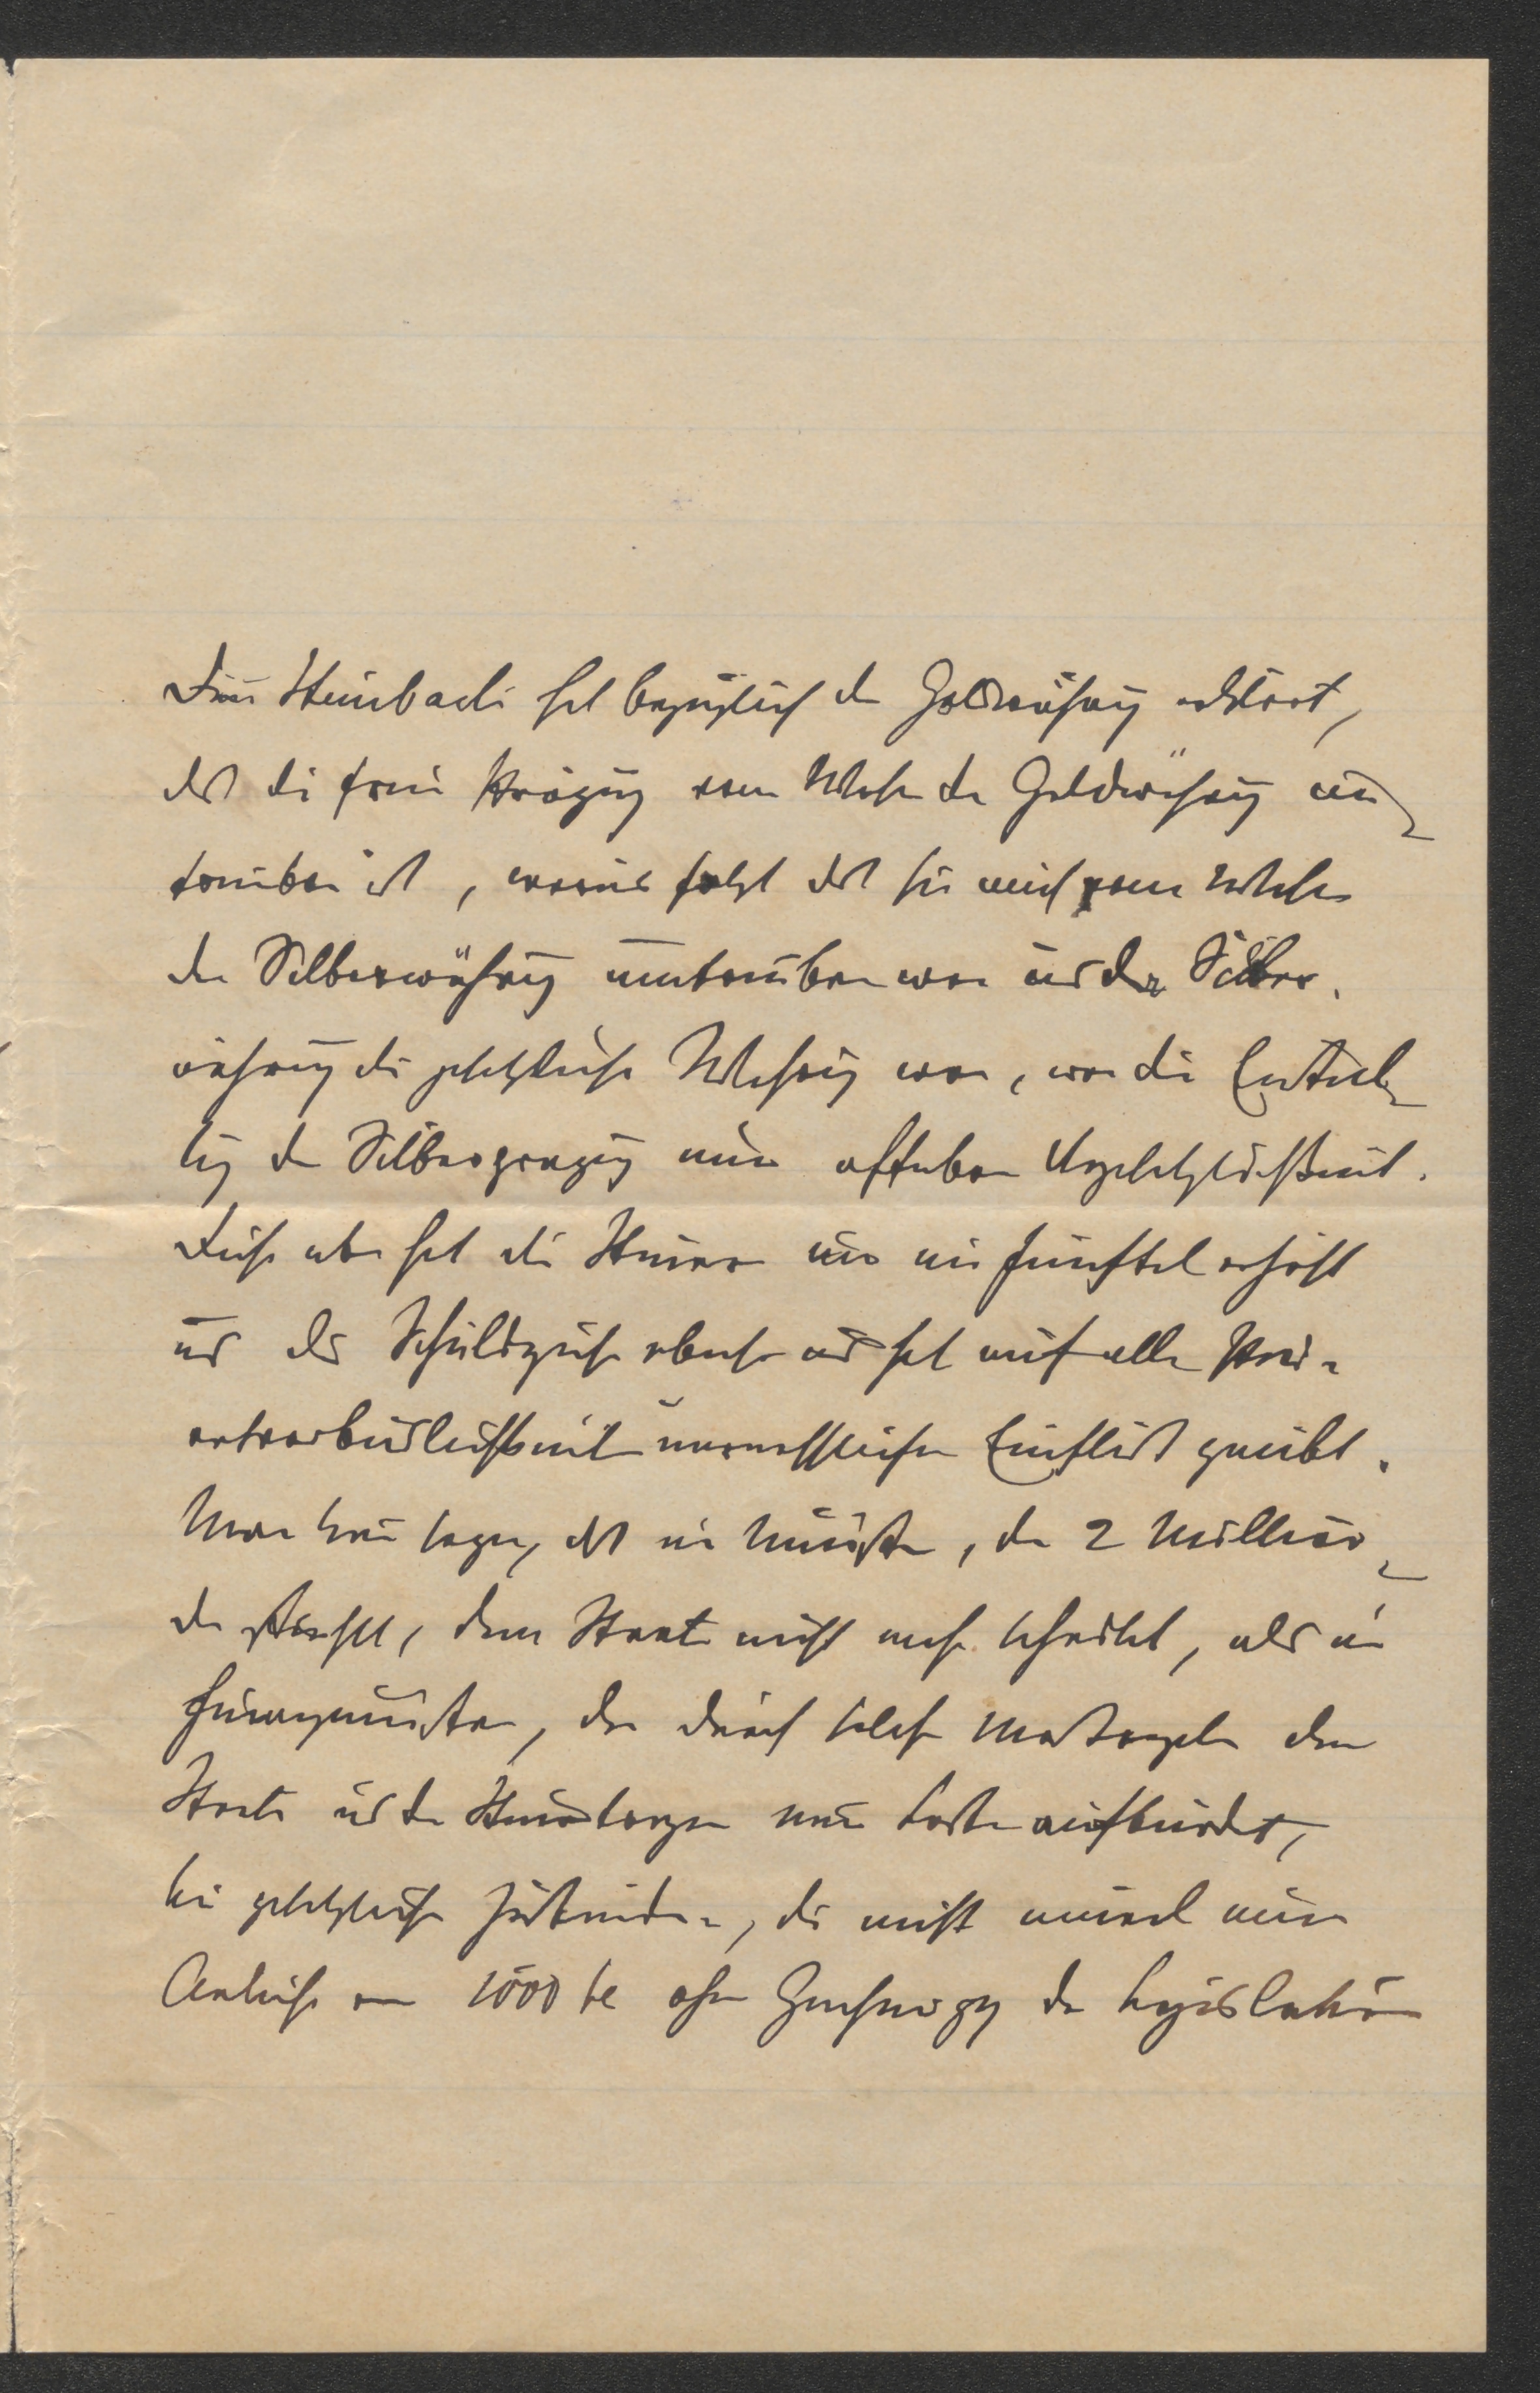 Dr Steinbach hat bezüglich der Goldwährung erklärt,
daß die freie Prägung vom Wesen der Goldwährung un-
trennbar ist, woraus folgt daß sie auch vom Wesen
der Silberwährung untrennbar war und da Silber-
währung die gesetzliche Währung war, war die Einstel-
lung der Silberprägung eine offenbare Ungesetzlichkeit.
Diese aber hat die Steuern um ein Fünftel erhöht
und die Schuldzinsen ebenso und hat auf alle Privat-
rechtverbindlichkeiten Einfluß geübt.
Man kann sagen, daß ein Minister, der 2 Milliar-
den stiehlt, dem Staate nicht mehr schadet, als ein
Finanzminister, der durch solche Maßregeln dem
Staate und den Steuerträgern neue Lasten aufbürdet,
bei gesetzlichen Zuständen, die nicht einmal eine
Anleihe von 1000 fl ohne Genehmigung der Legislation